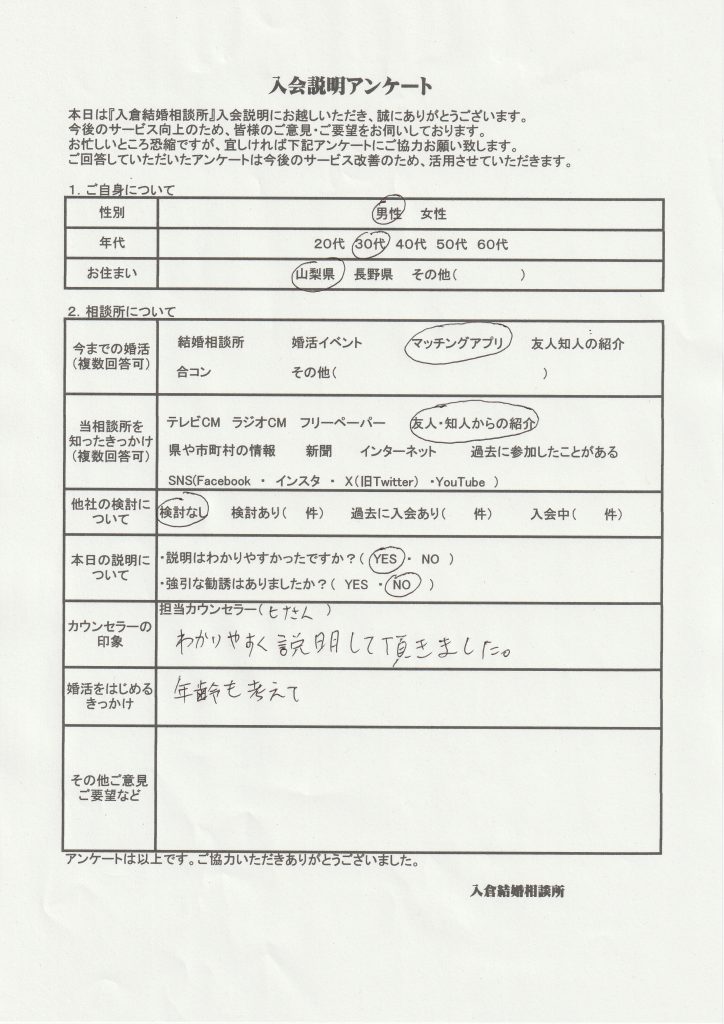 入会説明アンケート
本日は『入倉結婚相談所』入会説明にお越しいただき、誠にありがとうございます。
今後のサービス向上のため、皆様のご意見・ご要望をお伺いしております。
お忙しいところ恐縮ですが、宜しければ下記アンケートにご協力お願い致します。
ご回答していただいたアンケートは今後のサービス改善のため、活用させていただきます。
1. ご自身について
性別 男性 女性
年代 20代 30代 40代 50代 60代
お住まい 山梨県 長野県 その他( )
2. 相談所について
今までの婚活
(複数回答可)
結婚相談所 婚活イベント マッチングアプリ 友人知人の紹介
合コン その他( )
当相談所を
知ったきっかけ
(複数回答可)
テレビCM ラジオCM フリーペーパー 友人・知人からの紹介
県や市町村の情報 新聞 インターネット 過去に参加したことがある
SNS(Facebook ・ インスタ ・ X(旧Twitter) ・YouTube )
他社の検討に
ついて
検討なし 検討あり( 件) 過去に入会あり( 件) 入会中( 件)
本日の説明に
ついて
・説明はわかりやすかったですか？( YES ・ NO )
・強引な勧誘はありましたか？( YES ・ NO )
カウンセラーの
印象
担当カウンセラー( さん )
わかりやすく説明して頂きました。
婚活をはじめる
きっかけ
年齢も考えて
その他ご意見
ご要望など
アンケートは以上です。ご協力いただきありがとうございました。
入倉結婚相談所